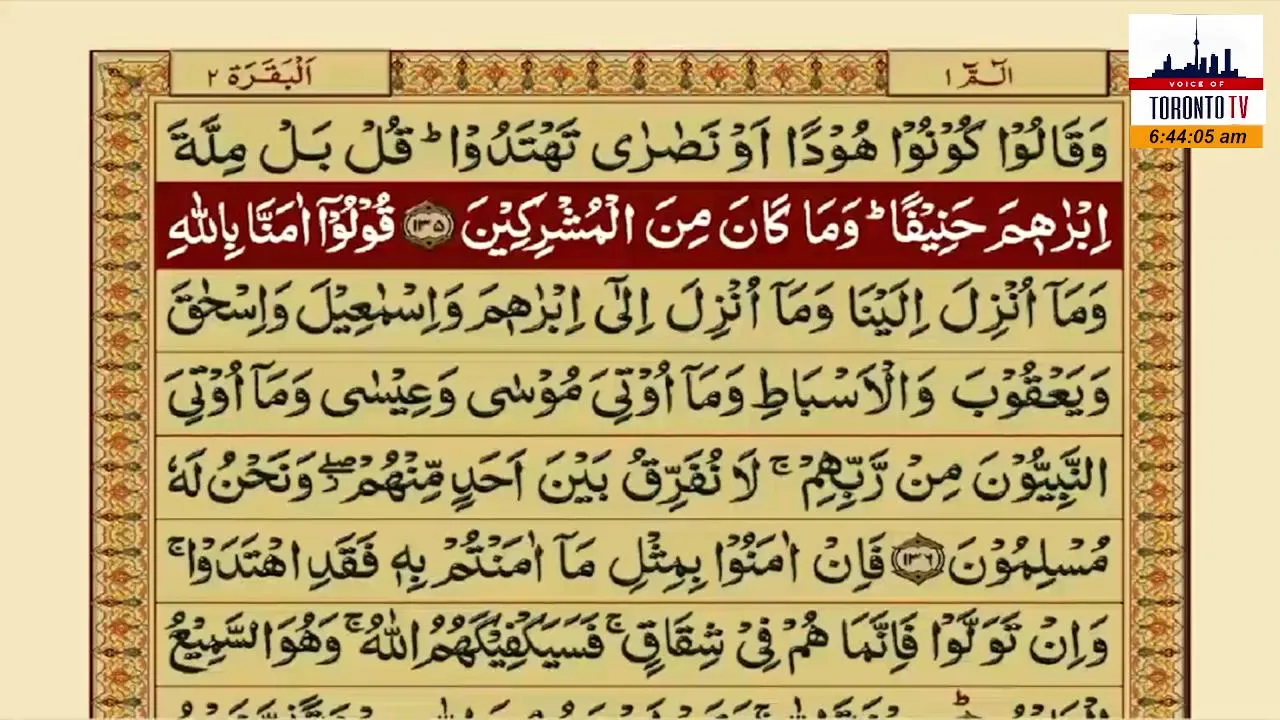 الٓمّٓ ١
اَلْبَقَرَة ٢
VOICE OF
TORONTO TV
6:44:05 am
وَقَالُوْا كُوْنُوْا هُوْدًا اَوْ نَصٰرٰى تَهْتَدُوْا ؕ قُلْ بَلْ مِلَّةَ
اِبْرٰهٖمَ حَنِيْفًا ؕ وَمَا كَانَ مِنَ الْمُشْرِكِيْنَ ﴿۱۳۵﴾ قُوْلُوْۤا اٰمَنَّا بِاللّٰهِ
وَمَاۤ اُنْزِلَ اِلَيْنَا وَمَاۤ اُنْزِلَ اِلٰٓى اِبْرٰهٖمَ وَاِسْمٰعِيْلَ وَاِسْحٰقَ
وَيَعْقُوْبَ وَالْاَسْبَاطِ وَمَاۤ اُوْتِىَ مُوْسٰى وَعِيْسٰى وَمَاۤ اُوْتِىَ
النَّبِيُّوْنَ مِنْ رَّبِّهِمْ ۚ لَا نُفَرِّقُ بَيْنَ اَحَدٍ مِّنْهُمْ ۖ وَنَحْنُ لَهٗ
مُسْلِمُوْنَ ﴿۱۳۶﴾ فَاِنْ اٰمَنُوْا بِمِثْلِ مَاۤ اٰمَنْتُمْ بِهٖ فَقَدِ اهْتَدَوْا ۚ
وَاِنْ تَوَلَّوْا فَاِنَّمَا هُمْ فِىْ شِقَاقٍ ۚ فَسَيَكْفِيْكَهُمُ اللّٰهُ ۚ وَهُوَ السَّمِيْعُ